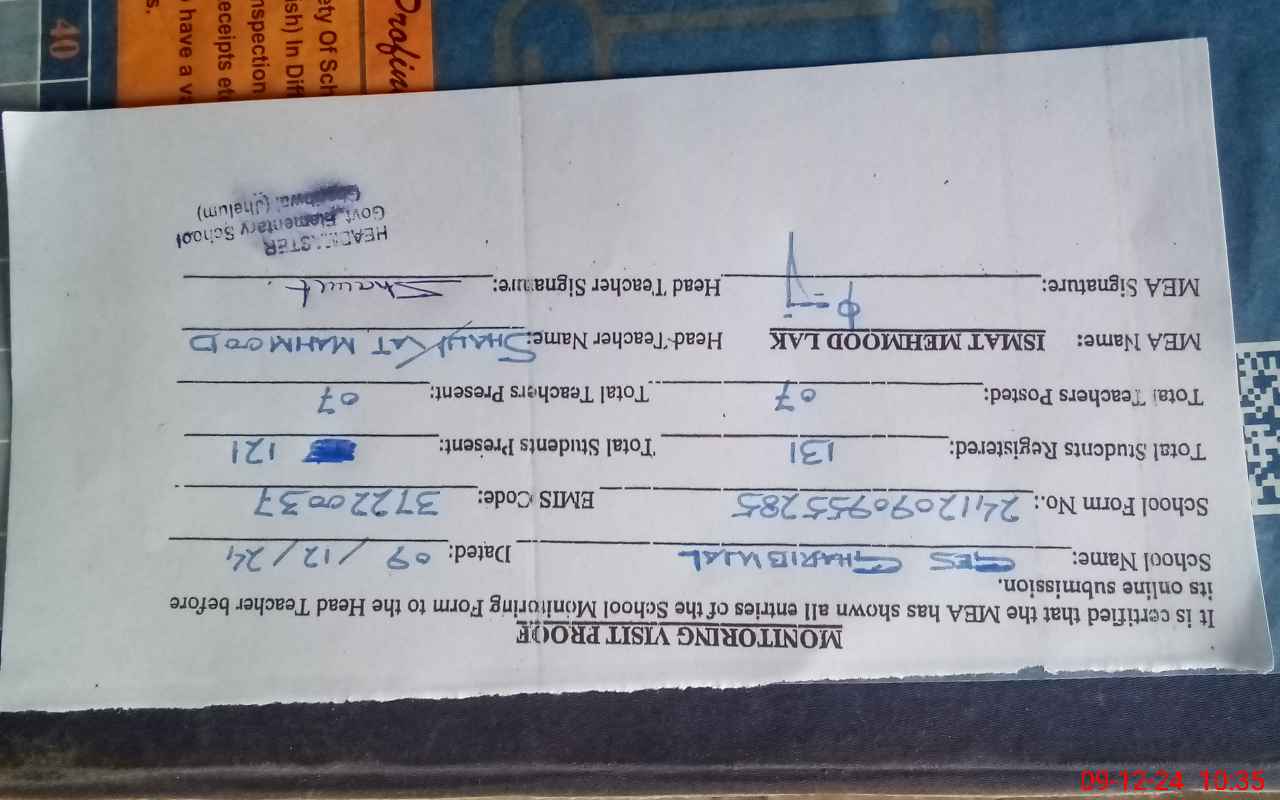 MONITORING VISIT PROOF
It is certified that the MEA has shown all entries of the School Monitoring Form to the Head Teacher before
its online submission.
School Name: GES GHARIBWAL Dated: 09/12/24
School Form No.: 241209095285 EMIS Code: 37220037
Total Students Registered: 131 Total Students Present: 121
Total Teachers Posted: 07 Total Teachers Present: 07
MEA Name: ISMAT MEHMOOD LAK Head Teacher Name: SHAUKAT MAHMOOD
MEA Signature: Head Teacher Signature: Shaukt
HEADMASTER
Govt. Elementary School
(Jhelum)
40
Profin
ety Of Sch
ish) In Diff
nspection
eceipts et
have a v
s.
09-12-24 10:35